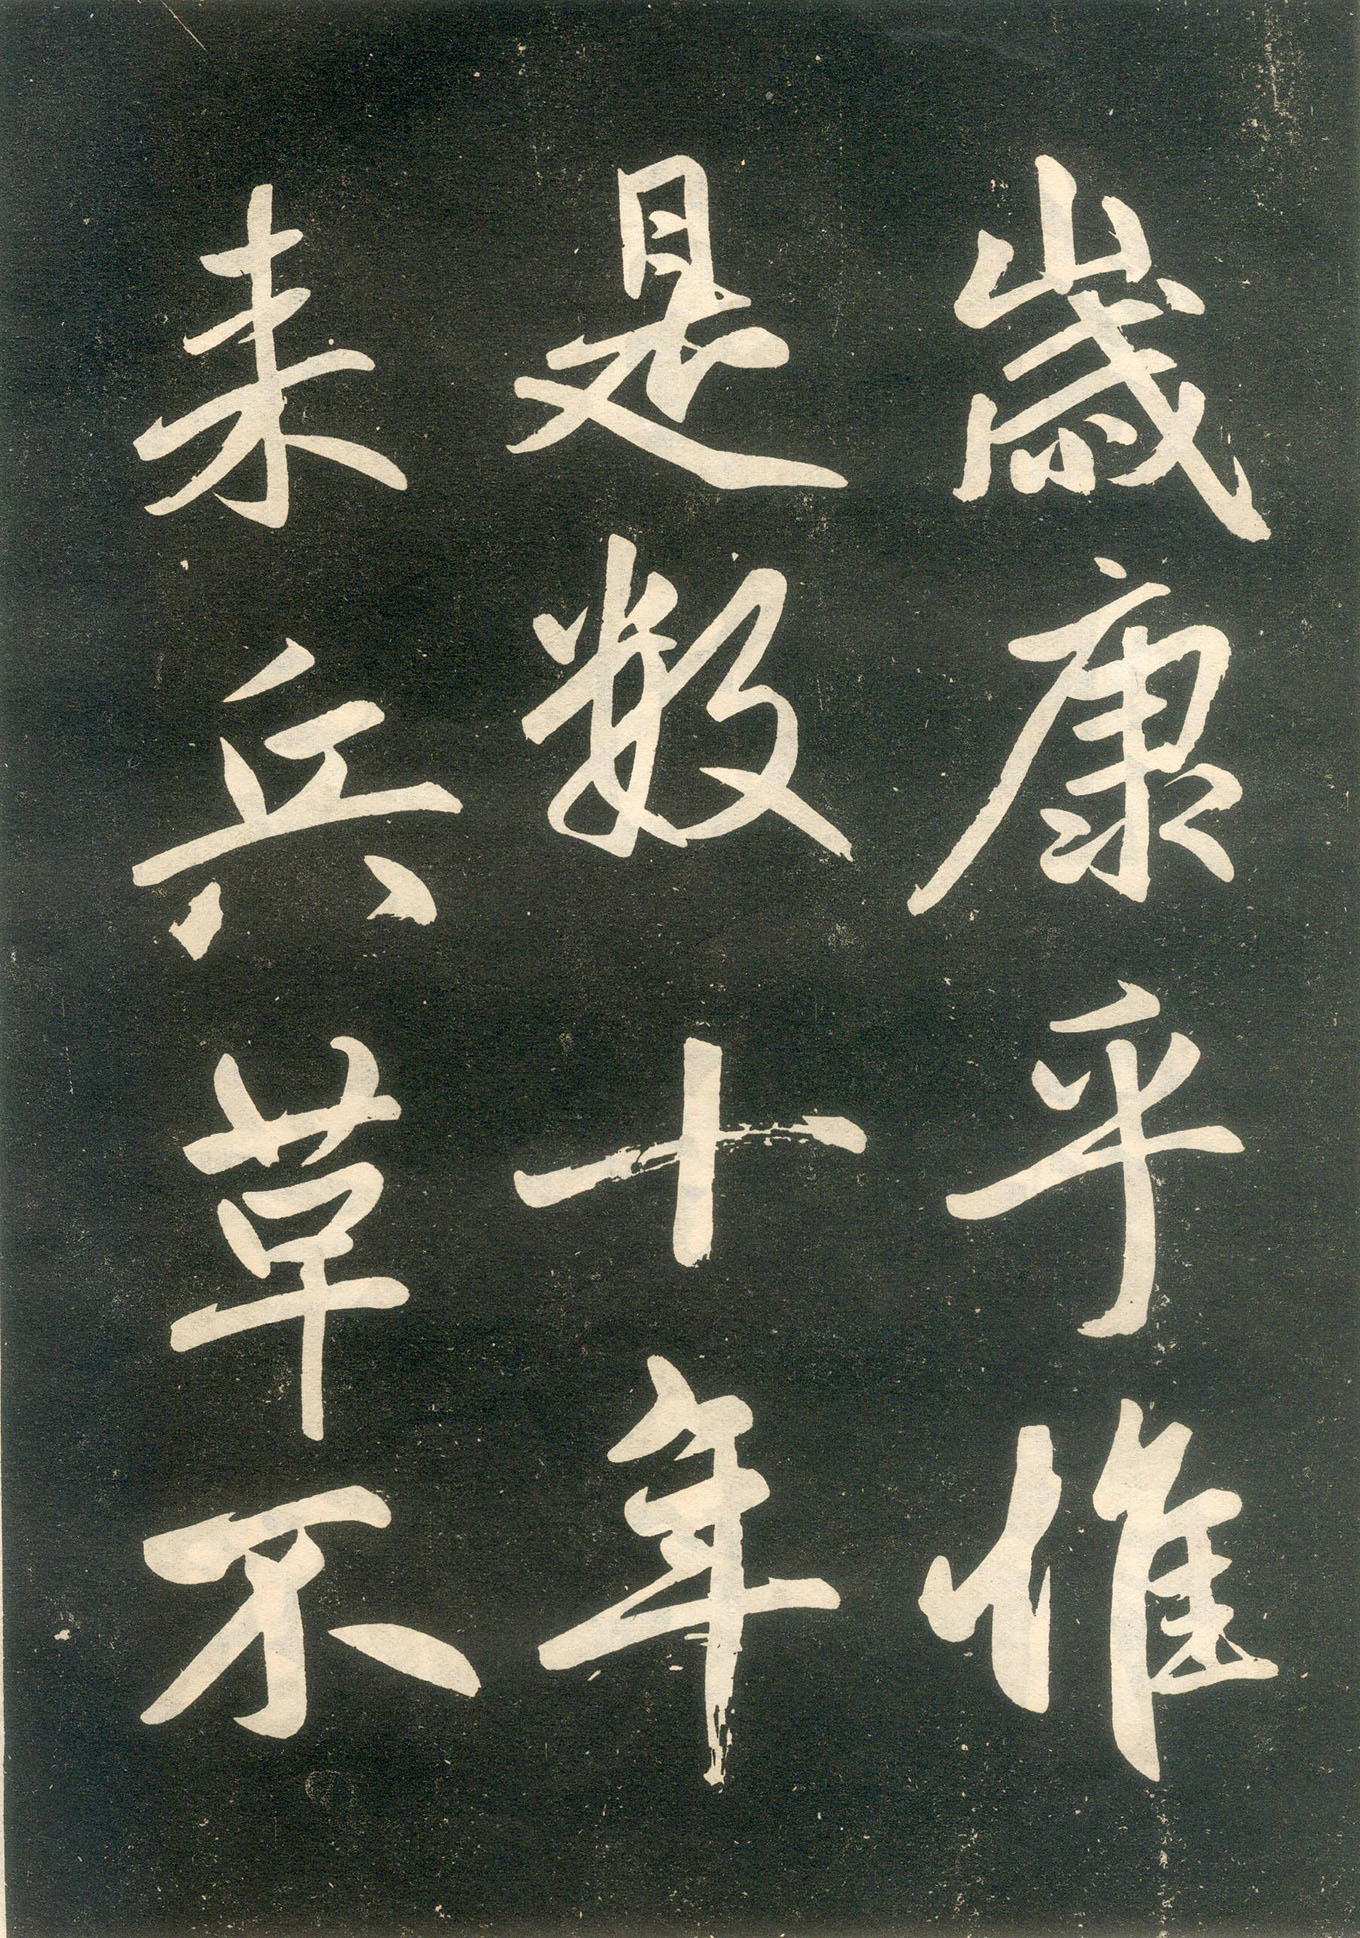 歲康乎惟
是數十年
来兵革不